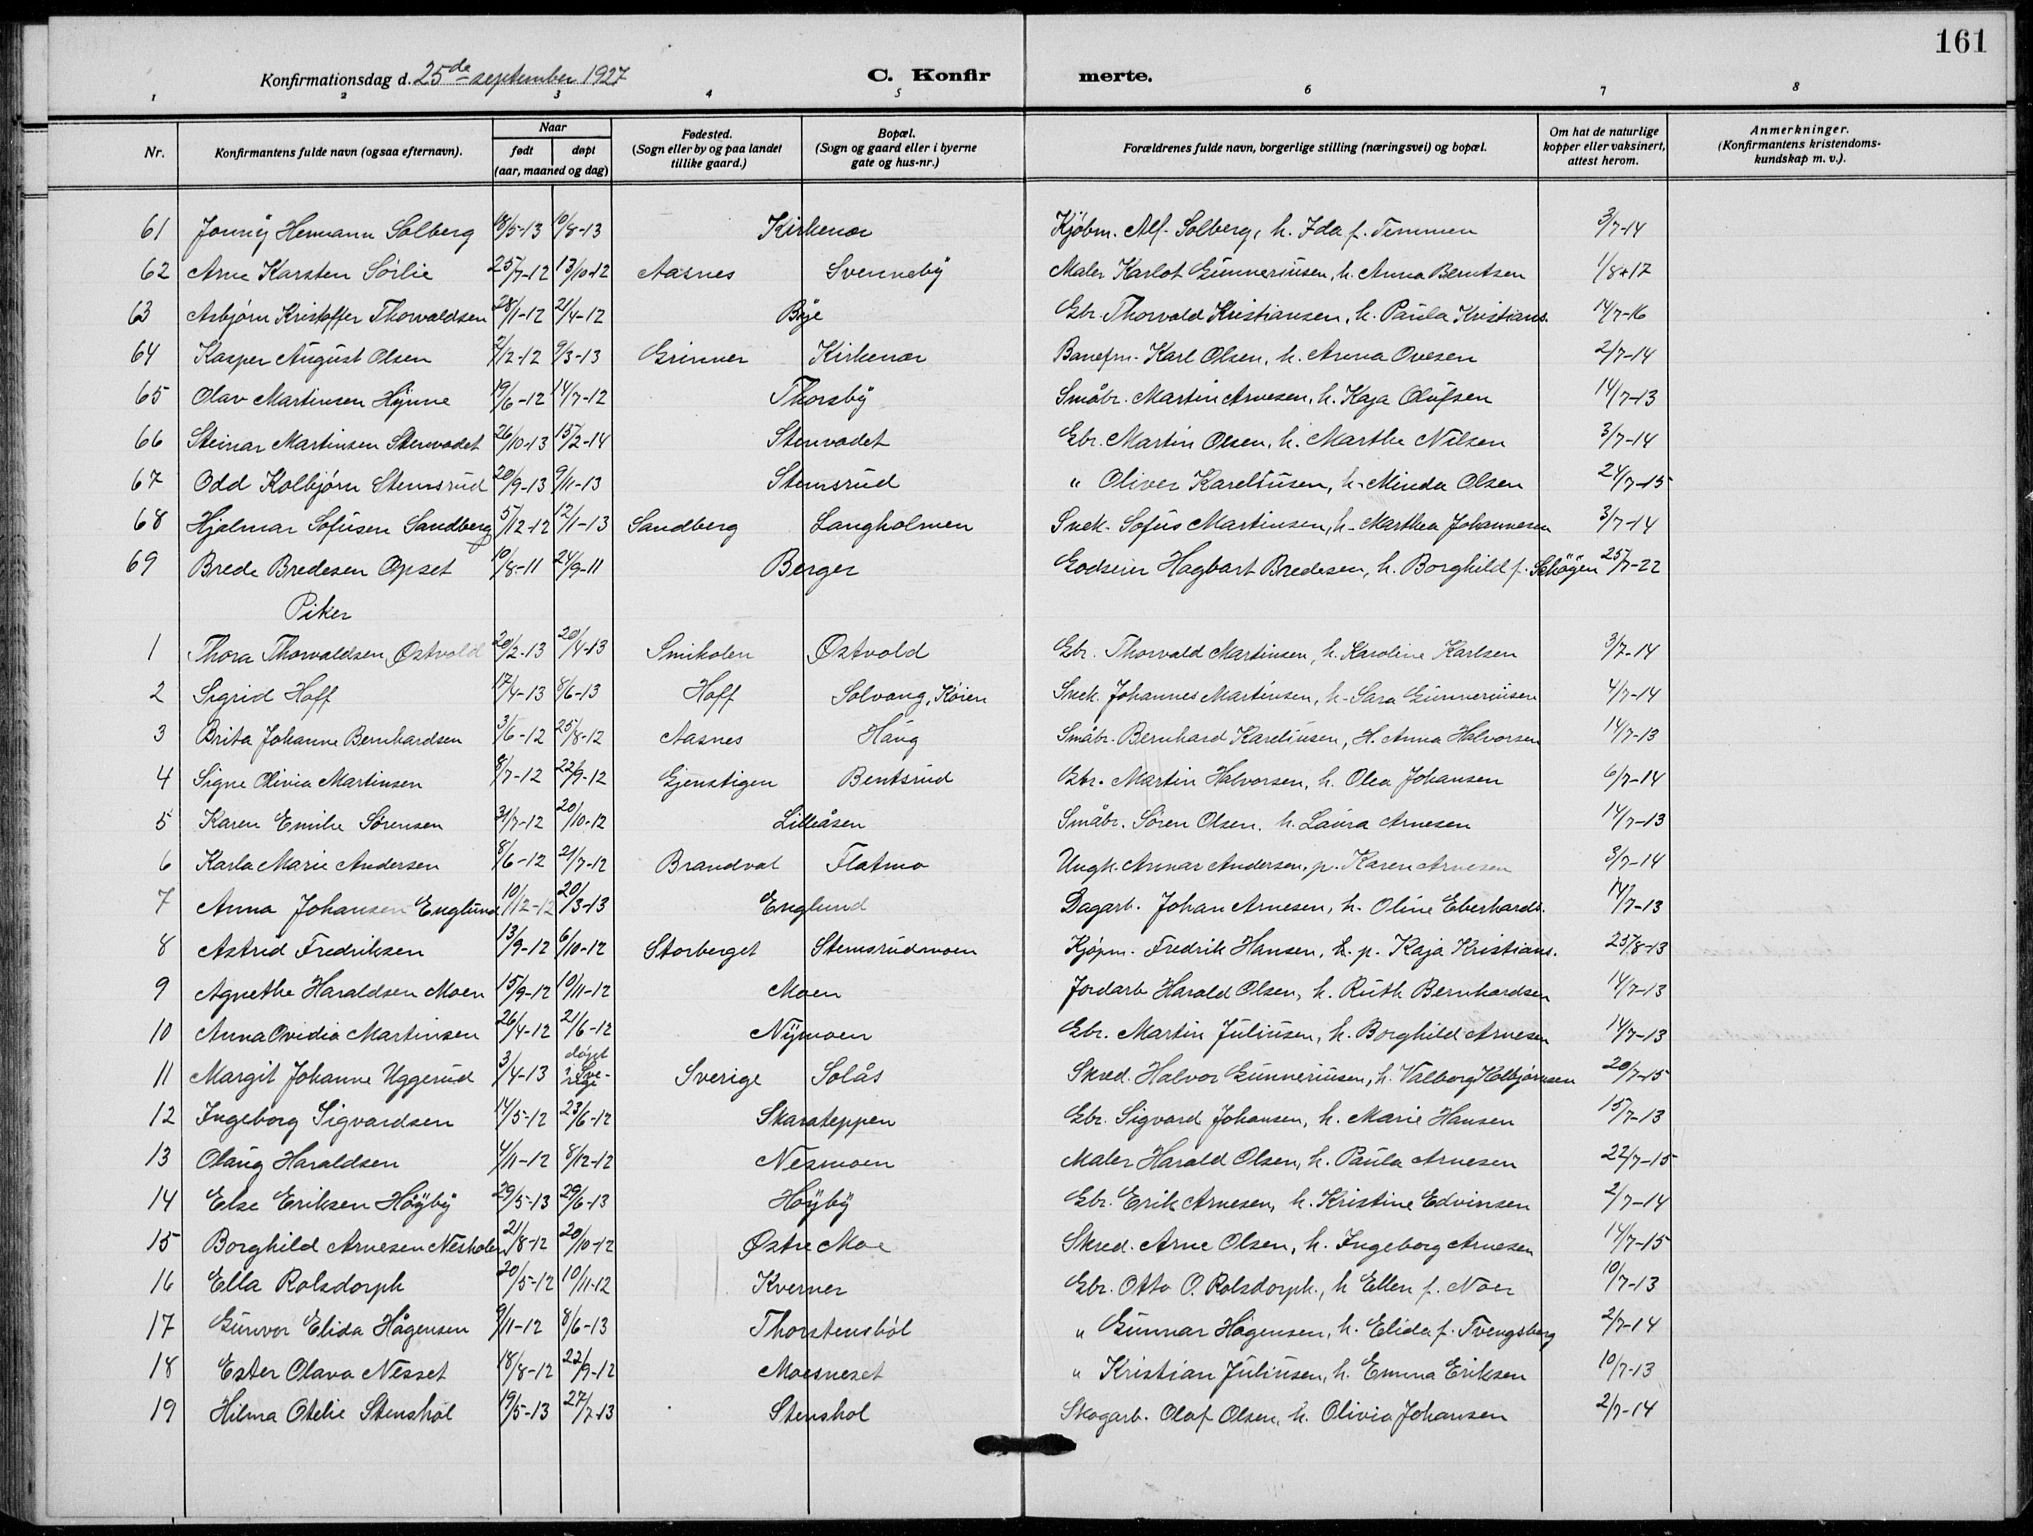 161
Konfirmationsdag d. 25de september 1927 C. Konfir merte.
1 2 3 4 5 6 7 8
Nr. Konfirmantens fulde navn (ogsaa efternavn). Naar født døpt (aar, maaned og dag) Fødested. (Sogn eller by og paa landet tillike gaard.) Bopæl. (Sogn og gaard eller i byerne gate og hus-nr.) Forældrenes fulde navn, borgerlige stilling (næringsvei) og bopæl. Om hat de naturlige kopper eller vaksinert, attest herom. Anmerkninger. (Konfirmantens kristendoms-kundskap m. v.).
61 Jonny Hermann Solberg 18/5-13 10/8-13 Kirkenær Kjøbm. Alf Solberg, h. Ida f. Temmen 3/7-14
62 Arne Karsten Sörlie 25/7-12 13/10-12 Aasnes Svenneby Maler Karlot Gunneriusen, h. Anna Berntsen 1/8-17
63 Asbjørn Kristoffer Thorvaldsen 28/1-12 21/4-12 Böje Gbr. Thorvald Kristiansen, h. Paula Kristians. 14/7-16
64 Kasper August Olsen 2/12-12 9/3-13 Grinner Kirkenær Banefm. Karl Olsen, h. Anna Ovesen 2/7-14
65 Olav Martinsen Hynne 19/6-12 14/7-12 Thorsby Småbr. Martin Arnesen, h. Kaja Olufsen 14/7-13
66 Steinar Martinsen Stenvadet 26/10-13 15/2-14 Stenvadet Gbr. Martin Olsen, h. Marthe Nilsen 3/7-14
67 Odd Kolbjørn Stemsrud 20/9-13 9/11-13 Stemsrud " Oliver Kareliusen, h. Minda Olsen 24/7-15
68 Hjalmar Sofusen Sandberg 5/12-12 12/1-13 Sandberg Langholmen Snek. Sofus Martinsen, h. Marthea Johannesen 3/7-14
69 Brede Bredesen Opset 10/8-11 24/9-11 Berger Godseier Hagbart Bredesen, h. Borghild f. Schögen 25/7-22
Piker
1 Thora Thorvaldsen Østvold 20/2-13 20/4-13 Smiholen Østvold Gbr. Thorvald Martinsen, h. Karoline Karlsen 3/7-14
2 Sigrid Hoff 17/4-13 8/6-13 Hoff Solvang, Köien Snek. Johannes Martinsen, h. Sara Gunneriusen 4/7-14
3 Brita Johanne Bernhardsen 3/6-12 25/8-12 Aasnes Haug Småbr. Bernhard Kareliusen, H. Anna Halvorsen 14/7-13
4 Signe Olivia Martinsen 8/7-12 22/9-12 Gjenstigen Bentsrud Gbr. Martin Halvorsen, h. Olea Johansen 6/7-14
5 Karen Emilie Sörensen 31/7-12 20/10-12 Lilleåsen Småbr. Sören Olsen, h. Laura Arnesen 14/7-13
6 Karla Marie Andersen 8/6-12 21/7-12 Brandval Flatmo Ungk. Annar Andersen, p. Karen Arnesen 3/7-14
7 Anna Johansen Englund 10/12-12 20/3-13 Englund Dagarb. Johan Arnesen, h. Oline Eberhards. 14/7-13
8 Astrid Fredriksen 13/9-12 6/10-12 Storberget Stemsrudmoen Kjøpm. Fredrik Hansen, h. p. Kaja Kristians. 25/8-13
9 Agnethe Haraldsen Moen 15/9-12 10/11-12 Moen Jordarb Harald Olsen, h. Ruth Bernhardsen 14/7-13
10 Anna Ovidia Martinsen 26/4-12 21/6-12 Nymoen Gbr. Martin Juliusen, h. Borghild Arnesen 14/7-13
11 Margit Johanne Uggerud 3/4-13 døpt i Sverige Sverige Solås Skred. Halvor Gunneriusen, h. Valborg Kolbjörnsen 20/7-15
12 Ingeborg Sigvardsen 14/5-12 23/6-12 Skarateppen Gbr. Sigvard Johansen, h. Marie Hansen 15/7-13
13 Olaug Haraldsen 4/11-12 8/12-12 Nesmoen Maler Harald Olsen, h. Paula Arnesen 22/7-15
14 Else Eriksen Höyby 29/5-13 29/6-13 Höyby Gbr. Erik Arnesen, h. Kristine Edvinsen 2/7-14
15 Borghild Arnesen Nesholen 21/8-12 20/10-12 Østre Moe Skred. Arne Olsen, h. Ingeborg Arnesen 14/7-15
16 Ella Rolsdorph 20/5-12 10/11-12 Kverner Gbr. Otto O. Rolsdorph, h Ellen f. Noer 10/7-13
17 Gunvor Elida Hågensen 9/11-12 8/6-13 Thorstensböl " Gunnar Hågensen, h. Elida f. Tvengsberg 2/7-14
18 Ester Olava Nesset 18/8-12 22/9-12 Moesneset " Kristian Juliusen, h. Emma Eriksen 10/7-13
19 Hilma Otelie Stenshol 19/5-13 27/7-13 Stenshol Skogarb. Olaf Olsen, h. Olivia Johansen 2/7-14